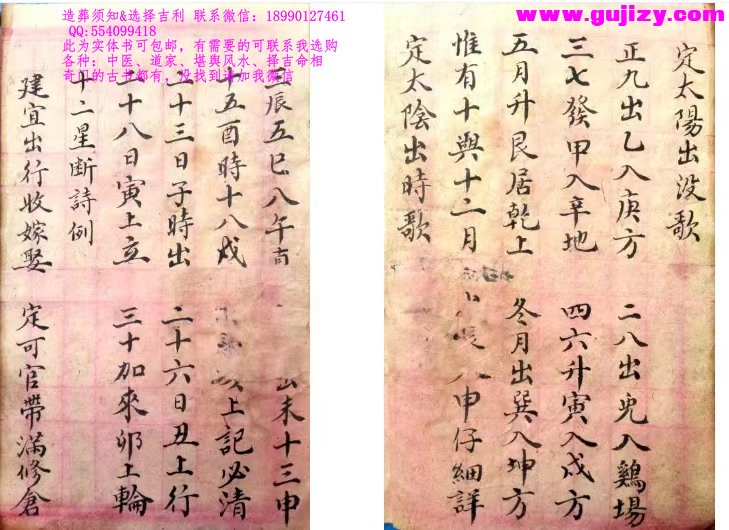 造葬须知&选择吉利 联系微信：18990127461
QQ:554099418
此为实体书可包邮，有需要的可联系我选购
各种：中医、道家、堪舆风水、择吉命相
奇门的古书都有，没找到请加我微信
www.gujizy.com
定太陽出没歌
正九出乙入庚方 二八出兎入鷄場
三七發甲入辛地 四六升寅入戌方
五月升艮居乾上 冬月出巽入坤方
惟有十與十二月 申仔細詳
定太陰出時歌
三辰五巳八午 未十三申
十五酉時十八戌 上記必清
二十三日子時出 二十六日丑上行
二十八日寅上立 三十加來卯上輪
十二星断詩例
建宜出行收嫁娶 定可官帶滿修倉